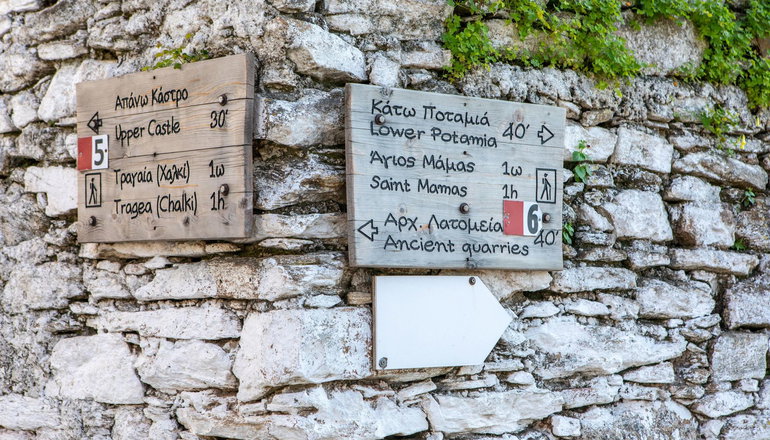 Απάνω Κάστρο
Upper Castle 30'
5
Τραγαία (Χαλκί) 1ω
Tragea (Chalki) 1h
Κάτω Ποταμιά
Lower Potamia 40'
Άγιος Μάμας 1ω
Saint Mamas 1h
Αρχ. Λατομεία 6
Ancient quarries 40'